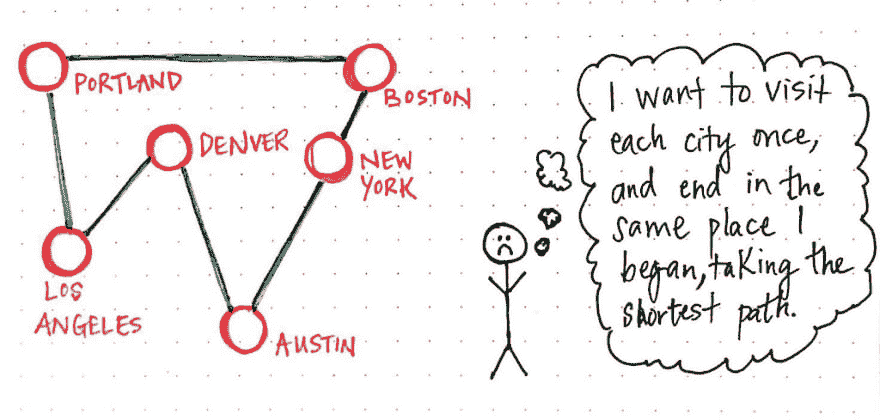 PORTLAND
BOSTON
DENVER
NEW
YORK
LOS
ANGELES
AUSTIN
I want to visit
each city once,
and end in the
same place I
began, taking the
shortest path.